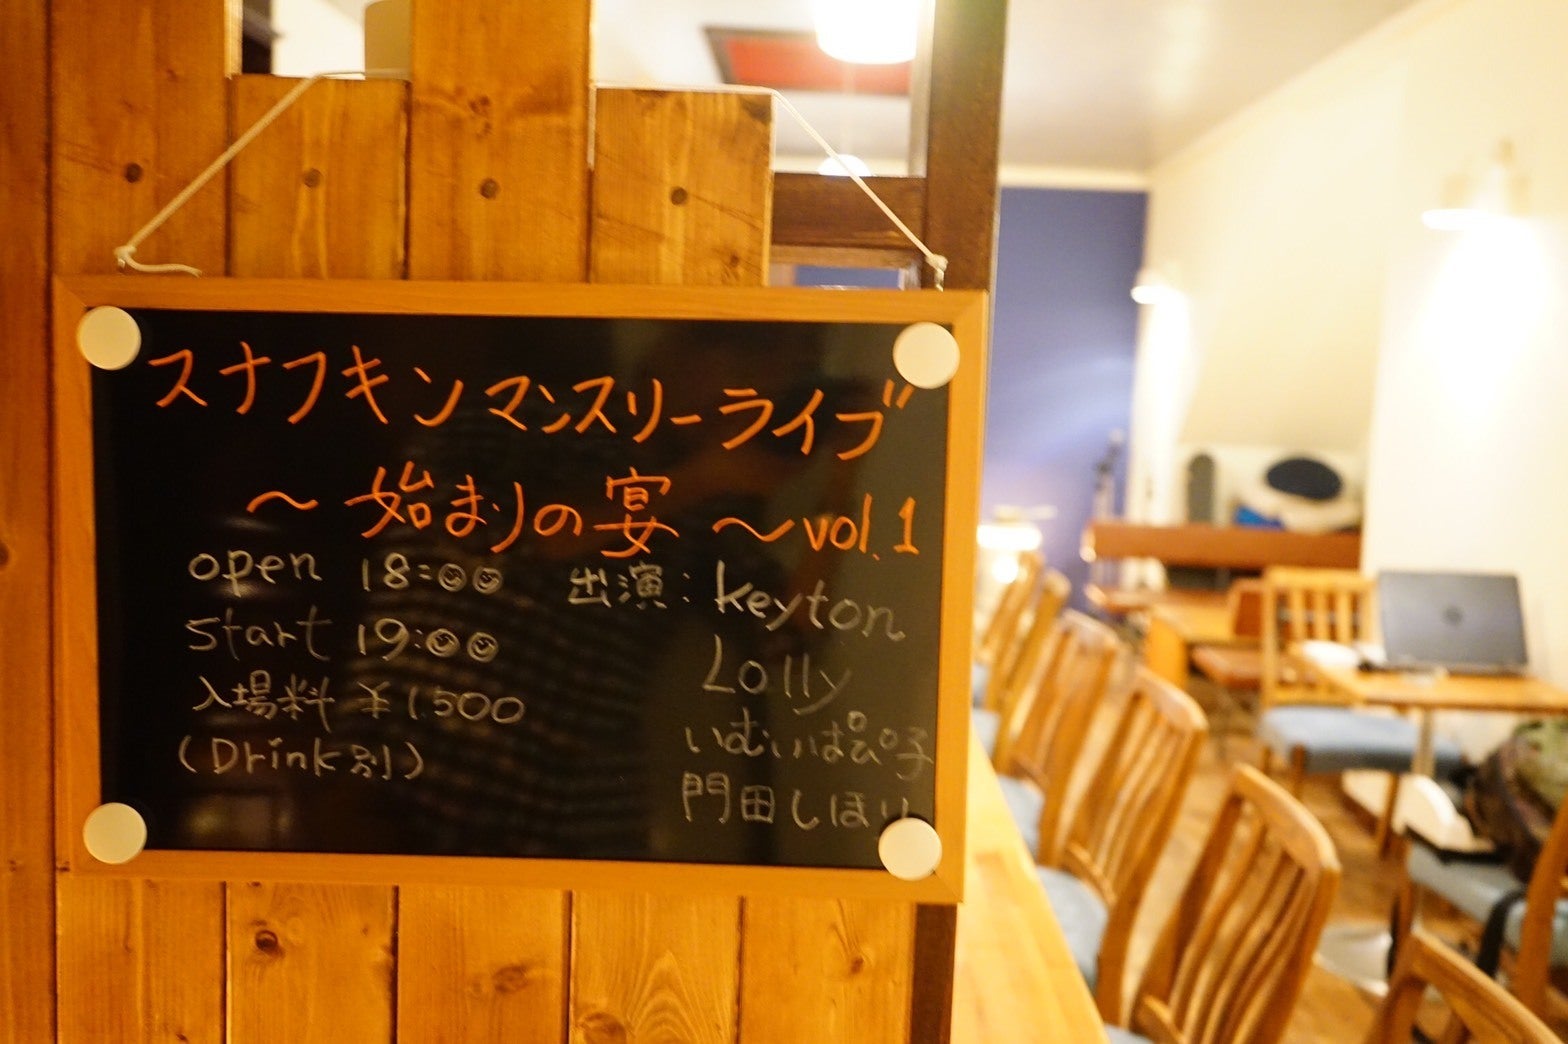 スナフキンマンスリーライブ
～始まりの宴～vol.1
open 18:00
start 19:00
入場料 ¥1,500
(Drink別)
出演: keyton
Lolly
いむいぱぷ子
門田しほり